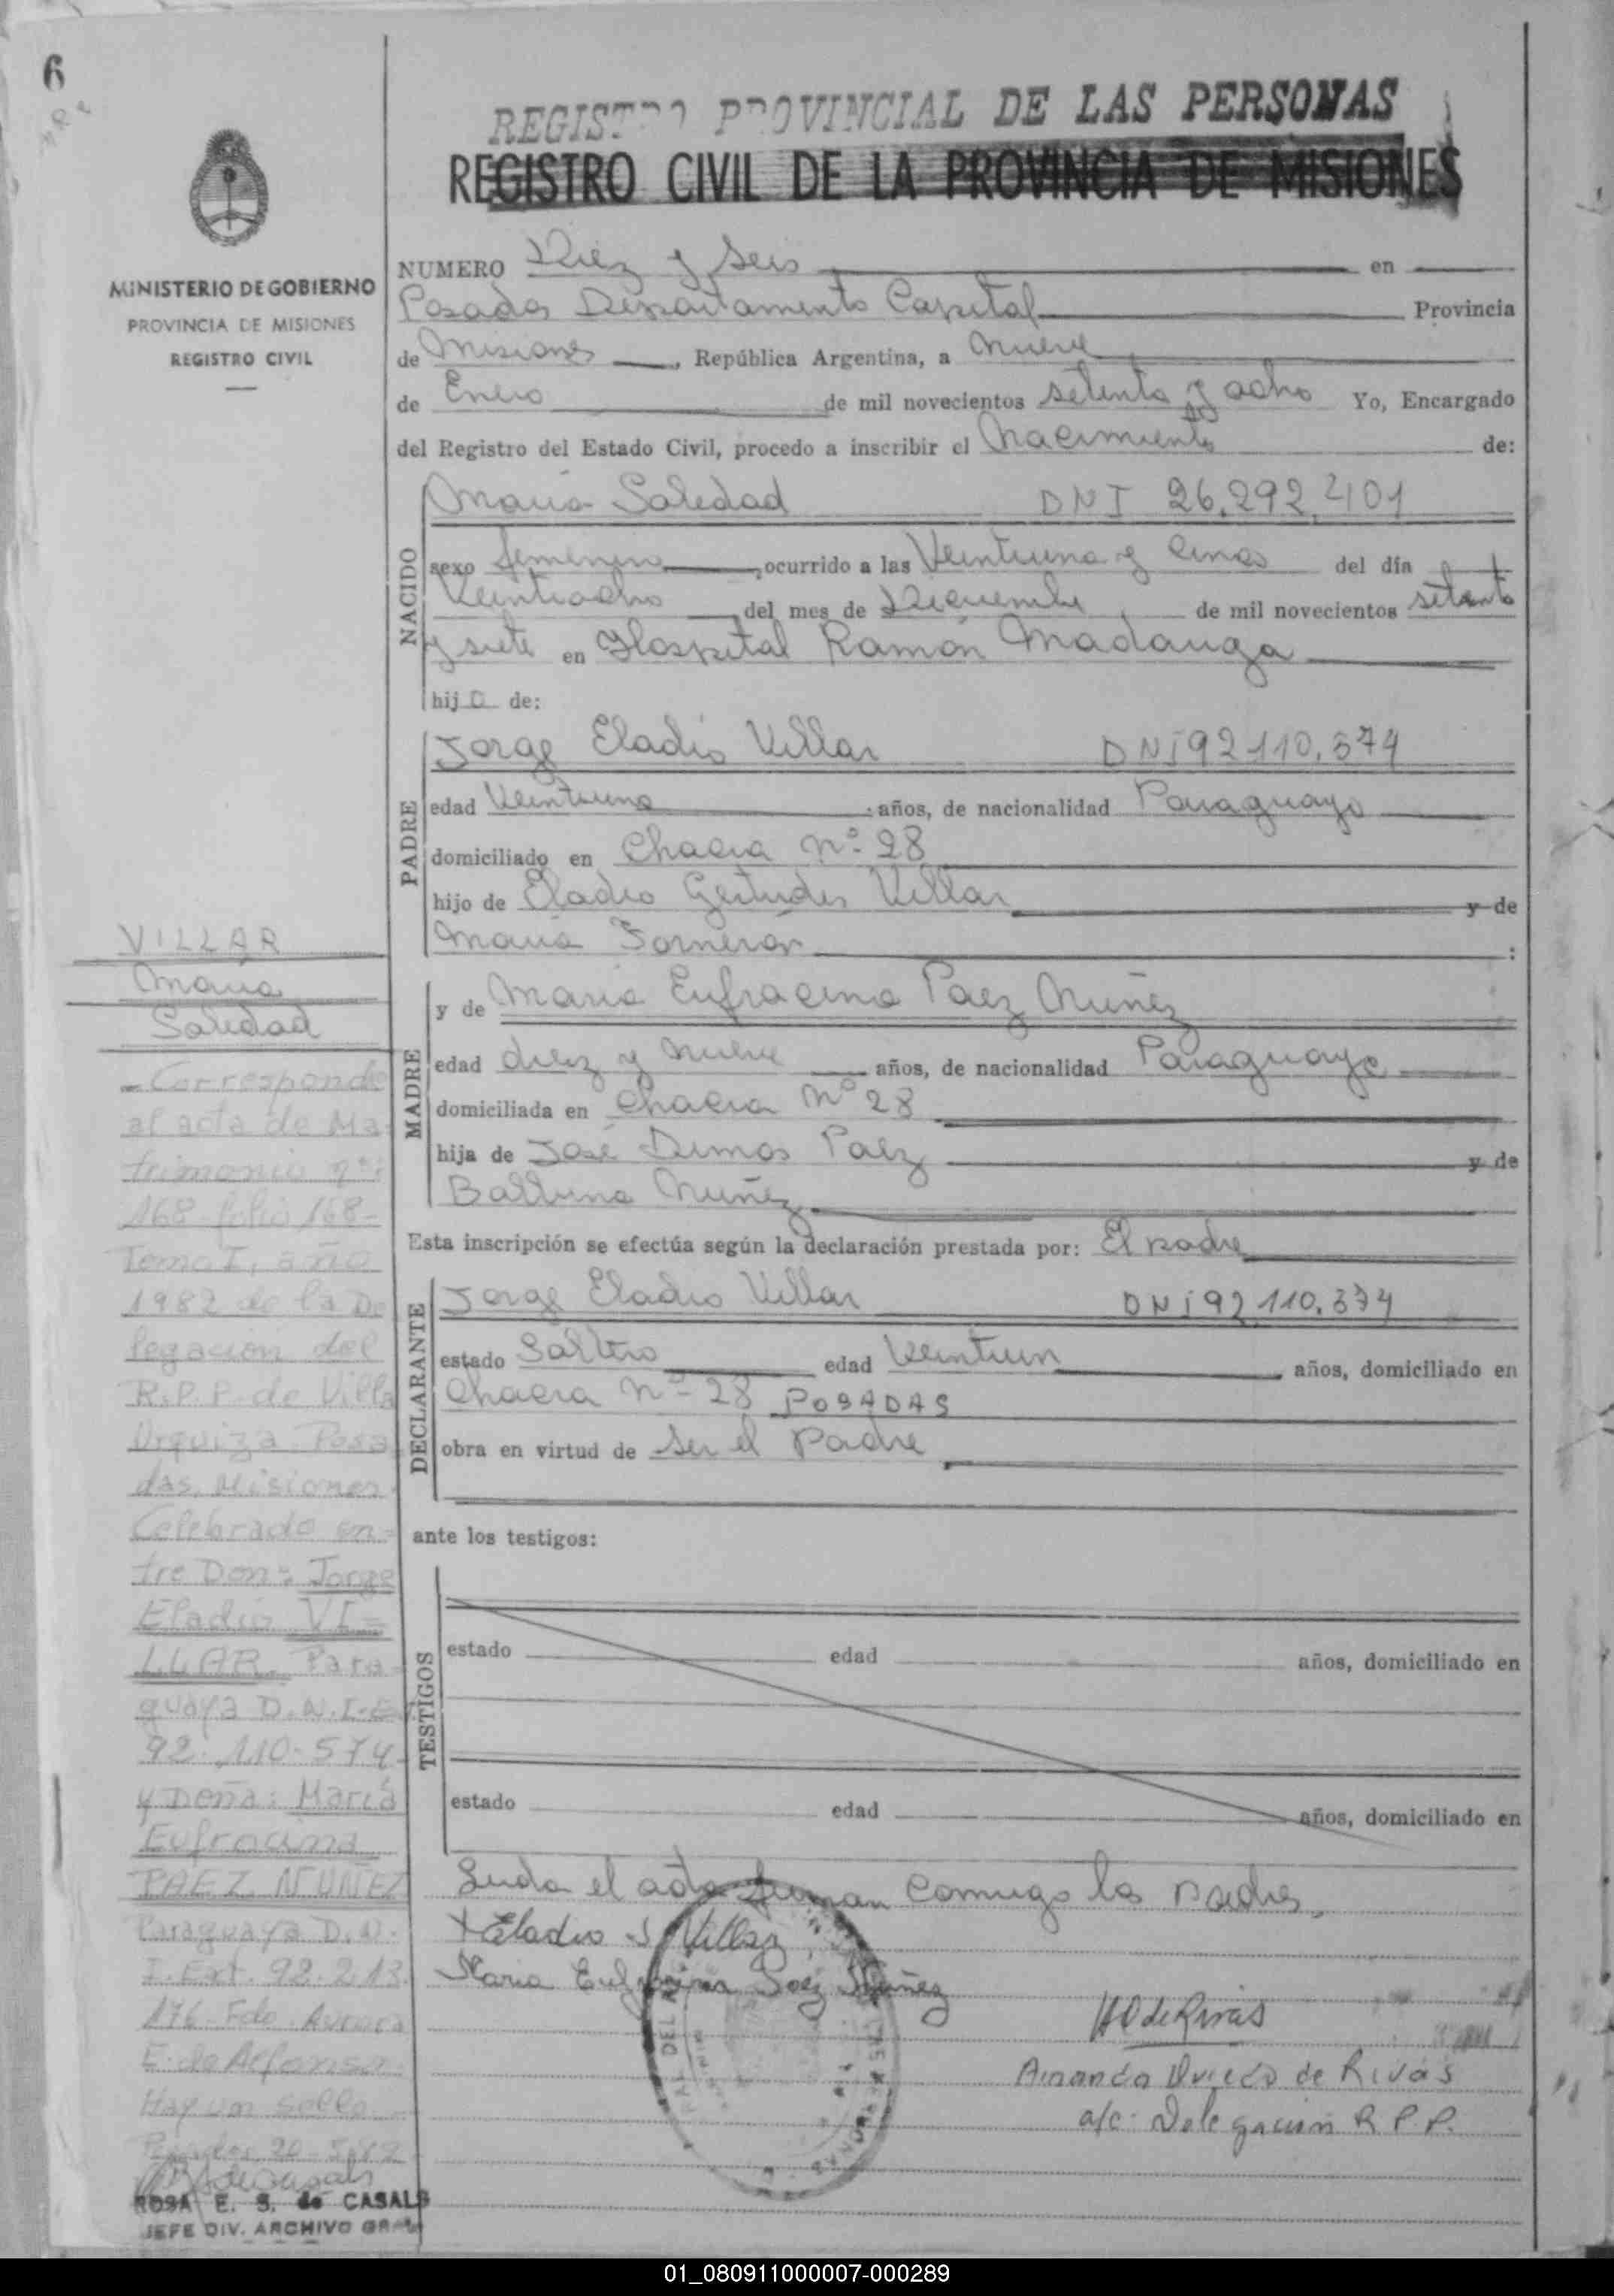 6
REGISTRO PROVINCIAL DE LAS PERSONAS
REGISTRO CIVIL DE LA PROVINCIA DE MISIONES
MINISTERIO DE GOBIERNO
PROVINCIA DE MISIONES
REGISTRO CIVIL
NUMERO Diez y seis en
Posadas Departamento Capital Provincia
de Misiones, República Argentina, a nueve
de Enero de mil novecientos setenta y ocho Yo, Encargado
del Registro del Estado Civil, procedo a inscribir el Nacimiento de:
NACIDO
Maria Soledad DNI 26.292.401
sexo femenino, ocurrido a las Veintiuna y cinco del día
Veintiocho del mes de Diciembre de mil novecientos setenta
y siete en Hospital Ramón Madariaga
hija de:
PADRE
Jorge Eladio Villar DNI 92110.374
edad Veintiuno años, de nacionalidad Paraguayo
domiciliado en Chacra Nº 28
hijo de Eladio Gertrudis Villar y de
Maria Forneron:
MADRE
y de Maria Eufracina Paez Nuñez
edad diez y nueve años, de nacionalidad Paraguaya
domiciliada en Chacra Nº 28
hija de José Dimas Paez y de
Balbina Nuñez
Esta inscripción se efectúa según la declaración prestada por: El padre
DECLARANTE
Jorge Eladio Villar DNI 92110.374
estado Soltero edad Veintiun años, domiciliado en
Chacra Nº 28 POSADAS
obra en virtud de ser el Padre
ante los testigos:
TESTIGOS
estado edad años, domiciliado en
estado edad años, domiciliado en
Leida el acta firman conmigo los padres,
Eladio J Villar
Maria Eufracina Paez Nuñez
HO de Rivas
Amanda Oviedo de Rivas
a/c: Delegacion R.P.P.
VILLAR
Maria
Soledad
- Corresponde
al acta de Ma-
trimonio nº:
168 folio 168-
Tomo I, año
1982 de la De
legación del
R.P.P. de Villa
Urquiza. Posa
das, Misiones
Celebrado en=
tre Don: Jorge
Eladio VI=
LLAR. Para-
guaya D.N.I-E
92.110-574
y Doña: María
Eufracina
PAEZ NUÑEZ
Paraguaya D.N.
I. Ext. 92.213.
176- Fdo. Aurora
E. de Alfonso.
Hay un Sello.
ROSA E. S. de CASALS
JEFE DIV. ARCHIVO GRAL
01_080911000007-000289